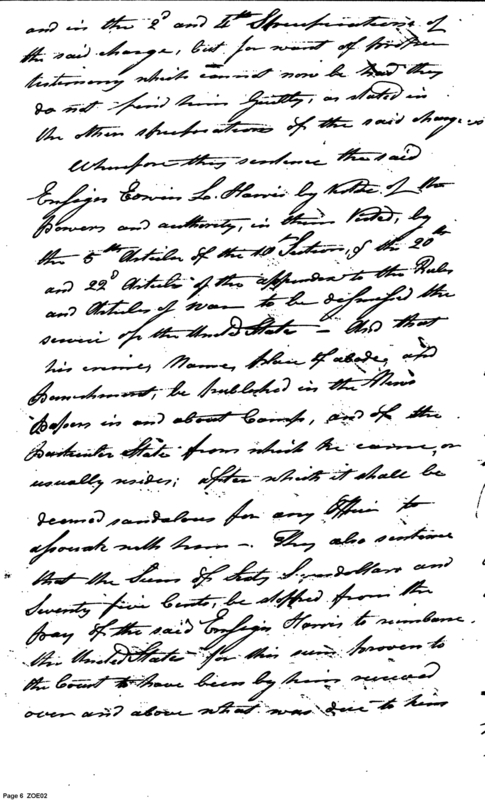 and in the 2d and 4th Specifications of
the said charge, but for want of proper
testimony which cannot now be had they
do not find him Guilty, as stated in
the other specifications of the said charge
Wherefore they sentence the said
Ensign Edwin L. Harris by virtue of the
Powers and authority, in them Vested, by
the 5th Article of the 10 Section, & the 20th
and 22d Article of the appendix to the Rules
and Articles of War to be dismissed the
service of the United States – And that
his crime, Name, place of abode, and
Punishment, be published in the News
Papers in and about Camp, and of the
Particular State from which he came, or
usually resides; after which it shall be
deemed scandalous for any Officer to
associate with him –. They also sentence
that the Sum of Sixty dollars and
Seventy five Cents, be stopped from the
pay of the said Ensign Harris to reimburse
the United States for this sum proven to
the Court to have been by him received
over and above what was due to him
Page 6 ZOE02